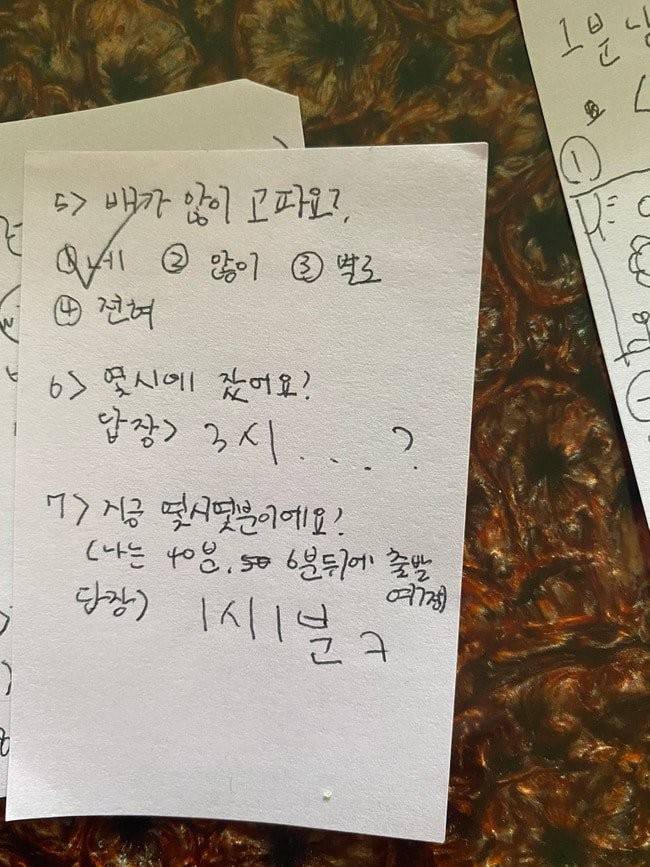 5> 배가 많이 고파요?
① 네 ② 많이 ③ 별로
④ 전혀
6> 몇시에 잤어요?
답장> 3시....?
7> 지금 몇시몇분이에요?
(나는 40분, 6분뒤에 출발
예정)
답장> 1시1분 ㅋ
1분
①